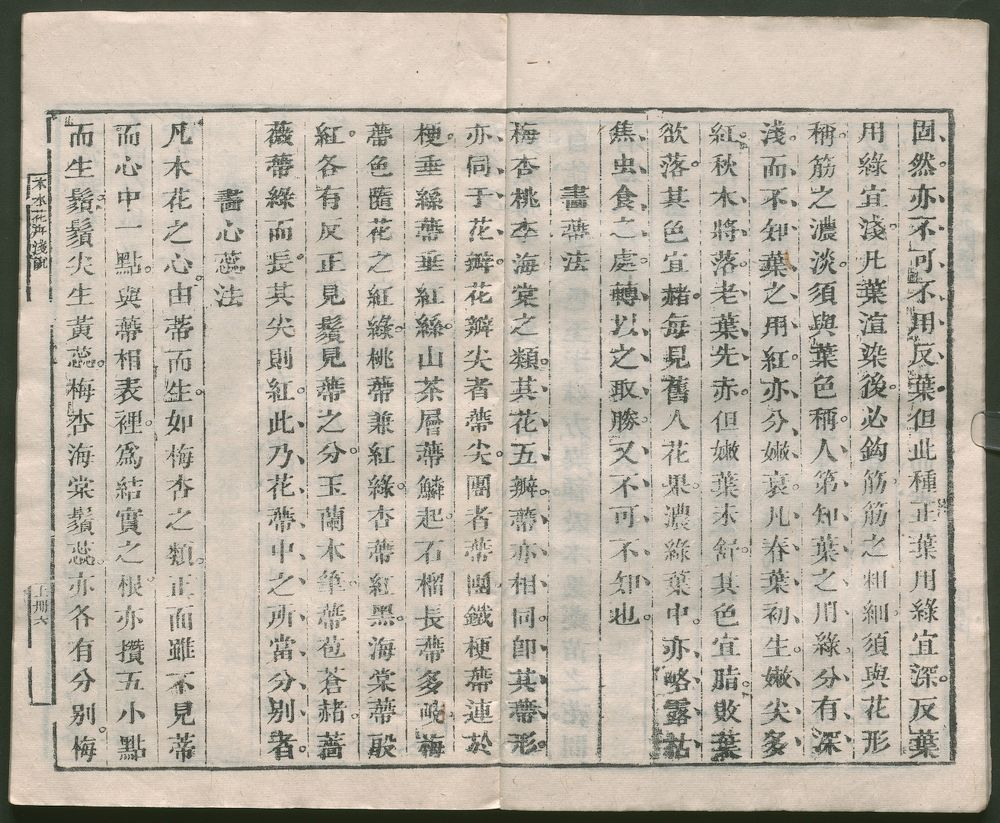 固然亦不可不用反葉但此種正葉用綠宜深反葉
用綠宜淺凡葉渲染後必鈎筋筋之粗細須與花形
稱筋之濃淡須與葉色稱人第知葉之用綠分有深
淺而不知葉之用紅亦分嫩衰凡春葉初生嫩尖多
紅秋木將落老葉先赤但嫩葉未舒其色宜脂敗葉
欲落其色宜赭每見舊人花果濃綠葉中亦略露枯
焦虫食之處轉以之取勝又不可不知也
畫蒂法
梅杏桃李海棠之類其花五瓣蒂亦相同卽其蒂形
亦同于花瓣花瓣尖者蒂尖團者蒂團鐵梗蒂連於
梗垂絲蒂垂紅絲山茶層蒂鱗起石榴長蒂多歧梅
蒂色隨花之紅綠桃蒂兼紅綠杏蒂紅黑海棠蒂殷
紅各有反正見鬚見蒂之分玉蘭木筆蒂苞蒼赭薔
薇蒂綠而長其尖則紅此乃花蒂中之所當分別者
畫心蕊法
凡木花之心由蒂而生如梅杏之類正面雖不見蒂
而心中一點與蒂相表裡爲結實之根亦攢五小點
而生鬚鬚尖生黃蕊梅杏海棠鬚蕊亦各有分別梅
上册六